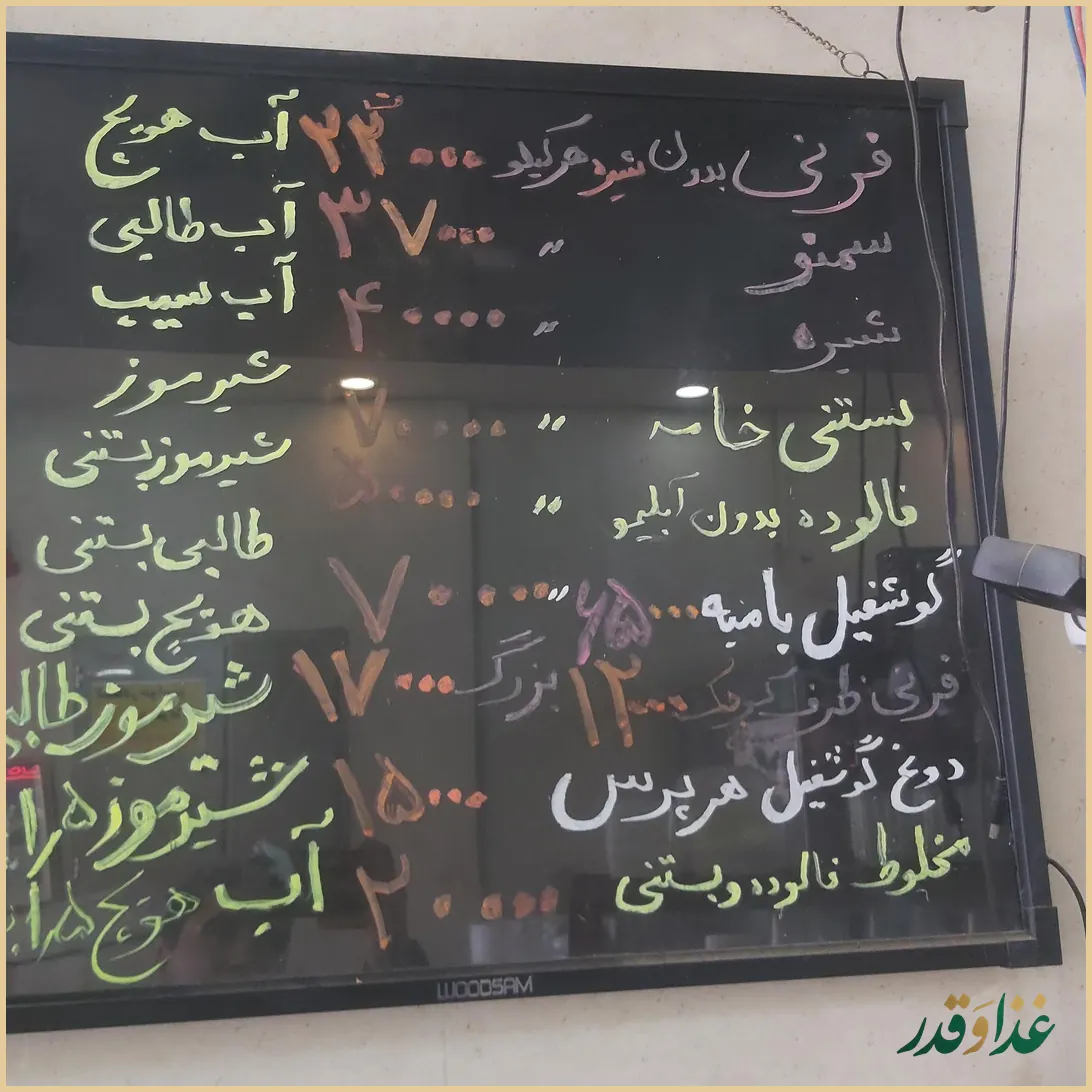 فرنی بدون شیره هر کیلو ۲۳۰۰۰
سمنو " ۳۷۰۰۰
شیره " ۴۰۰۰۰
بستنی خامه " ۷۰۰۰۰
فالوده بدون آبلیمو "
گوشفیل بامیه ۶۵۰۰۰ " ۷۰۰۰۰
فرنی ظرف کوچک ۱۲۰۰۰ بزرگ ۱۷۰۰۰
دوغ گوشفیل هر پرس ۱۵۰۰۰
مخلوط فالوده و بستنی ۲۰۰۰۰
آب هویج
آب طالبی
آب سیب
شیر موز
شیر موز بستنی
طالبی بستنی
هویج بستنی
شیر موز طالبی
شیر موز ۱/۵
آب هویج ۱/۵
WOODSAM
غذا و قدر